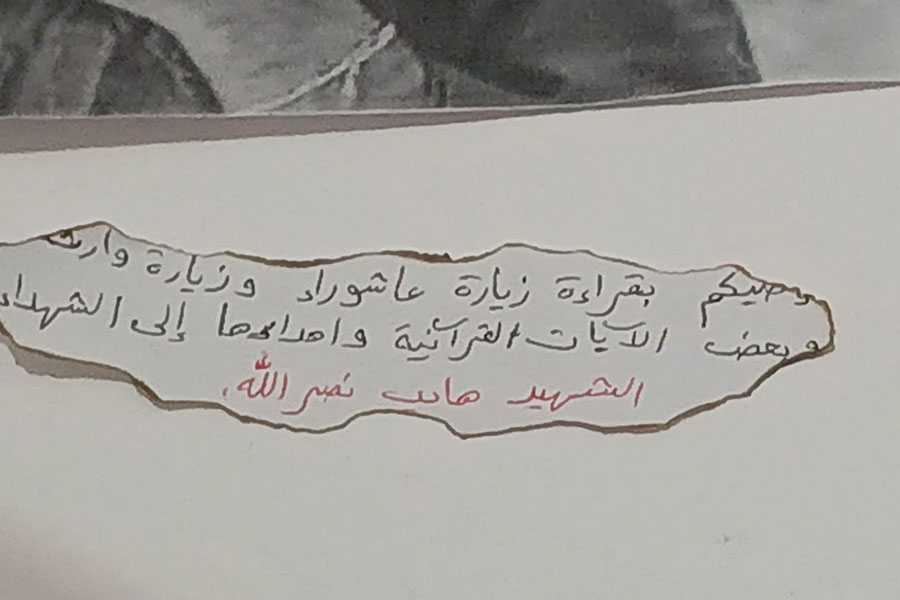 وصيكم بقراءة زيارة عاشوراء وزيارة وارث
وبعض الآيات القرآنية واهدائها إلى الشهداء
الشهيد هاني نصر الله.